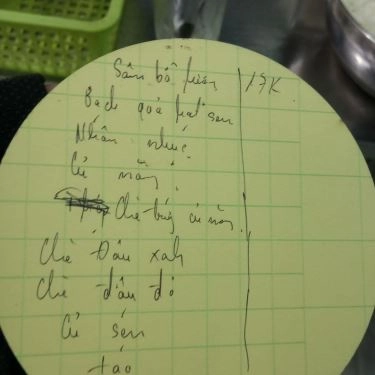 Sâm bổ lượng 17K
Bạch quả hạt sen
Nhãn nhục
Củ năng
Chè bưởi củ năng
Chè Đậu xanh
Chè đậu đỏ
Củ sen
táo